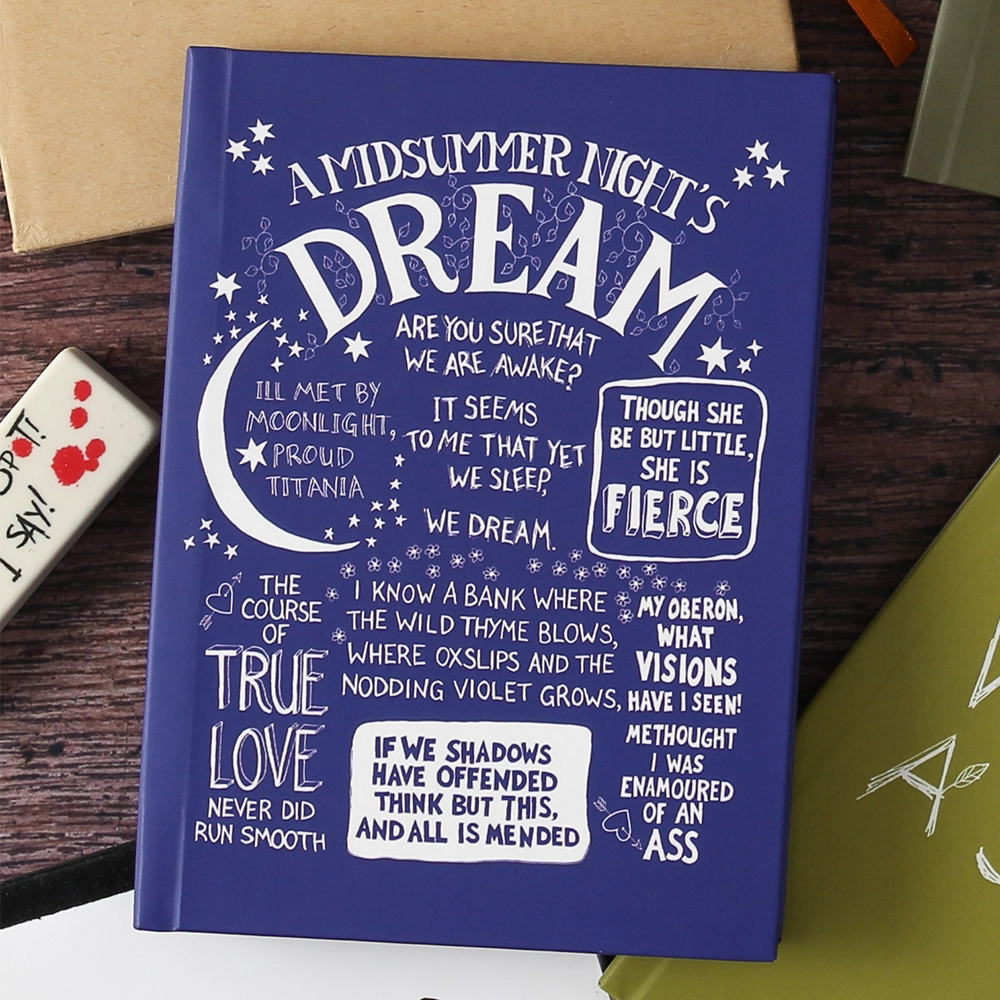 A MIDSUMMER NIGHT'S
DREAM
ARE YOU SURE THAT
WE ARE AWAKE?
IT SEEMS
TO ME THAT YET
WE SLEEP,
WE DREAM.
ILL MET BY
MOONLIGHT,
PROUD
TITANIA
THOUGH SHE
BE BUT LITTLE,
SHE IS
FIERCE
THE
COURSE
OF
TRUE
LOVE
NEVER DID
RUN SMOOTH
I KNOW A BANK WHERE
THE WILD THYME BLOWS,
WHERE OXSLIPS AND THE
NODDING VIOLET GROWS,
IF WE SHADOWS
HAVE OFFENDED
THINK BUT THIS,
AND ALL IS MENDED
MY OBERON,
WHAT
VISIONS
HAVE I SEEN!
METHOUGHT
I WAS
ENAMOURED
OF AN
ASS
I SAY!
A